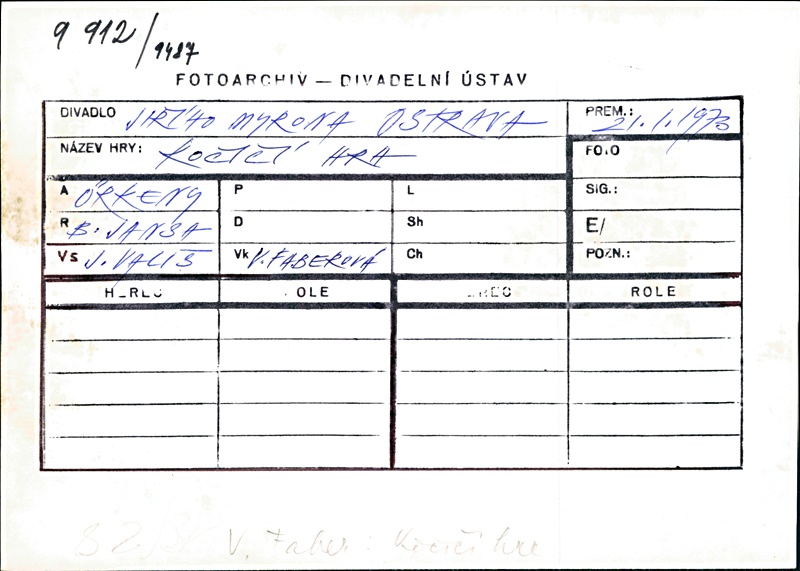 9 912/1487
FOTOARCHIV — DIVADELNÍ ÚSTAV
DIVADLO JIŘÍHO MYRONA OSTRAVA
PREM.: 21.1.1973
NÁZEV HRY: KOČIČÍ HRA
FOTO
A ÖRKENY
P
L
SIG.:
R B. JANSA
D
Sh
E/
Vs J. VALIŠ
Vk V. FABEROVÁ
Ch
POZN.:
HEREC
ROLE
HEREC
ROLE
V. Faber: Kočičí hra